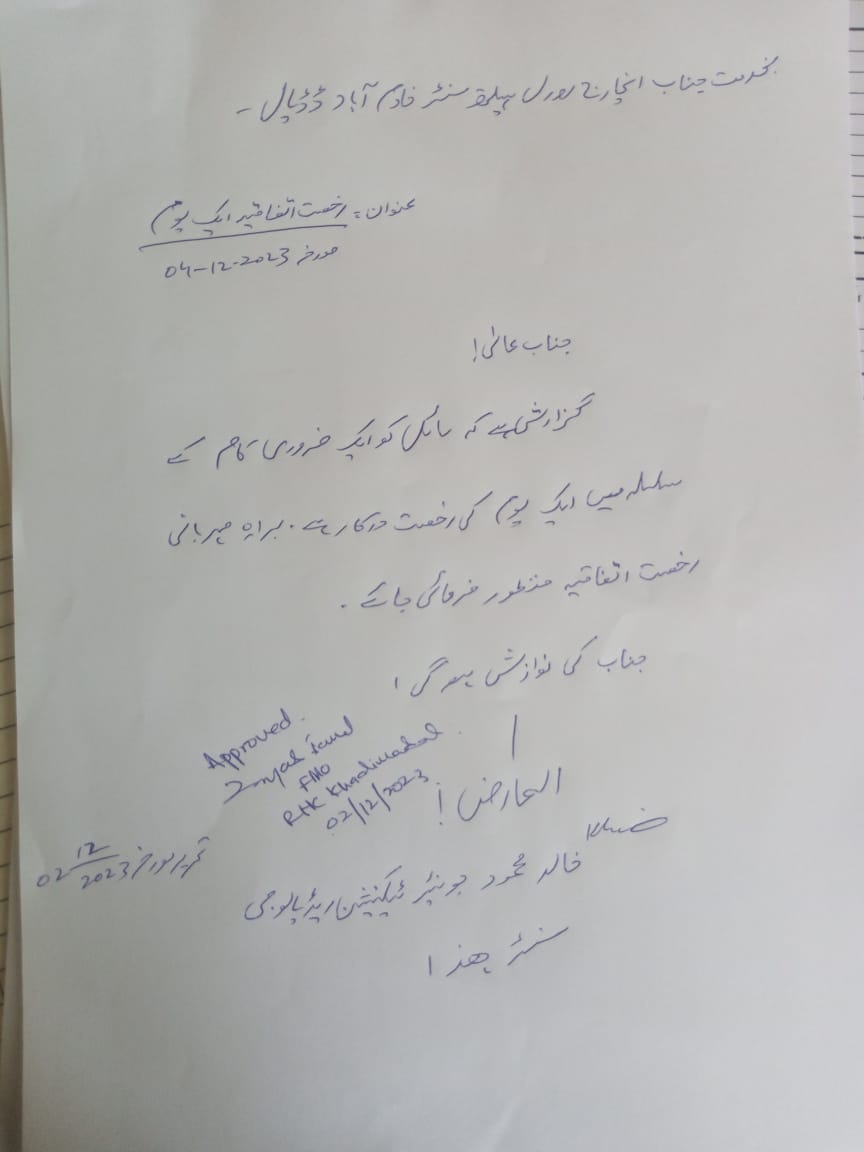 بخدمت جناب انچارج رورل ہیلتھ سنٹر خادم آباد ڈڈیال ۔
عنوان = رخصت اتفاقیہ ایک یوم
مورخہ 04-12-2023
جناب عالی!
گزارش ہے کہ سائل کو ایک ضروری کام کے
سلسلہ میں ایک یوم کی رخصت درکار ہے ۔ براہ مہربانی
رخصت اتفاقیہ منظور فرمائی جائے ۔
جناب کی نوازش ہو گی ،
Approved.
FMO
RHK Khadimabad
02/12/2023
العارض !
خالد محمود جونیئر ٹیکنیشن ریڈیالوجی
تحریر مورخہ 02 12 2023
سنٹر ھذا ا